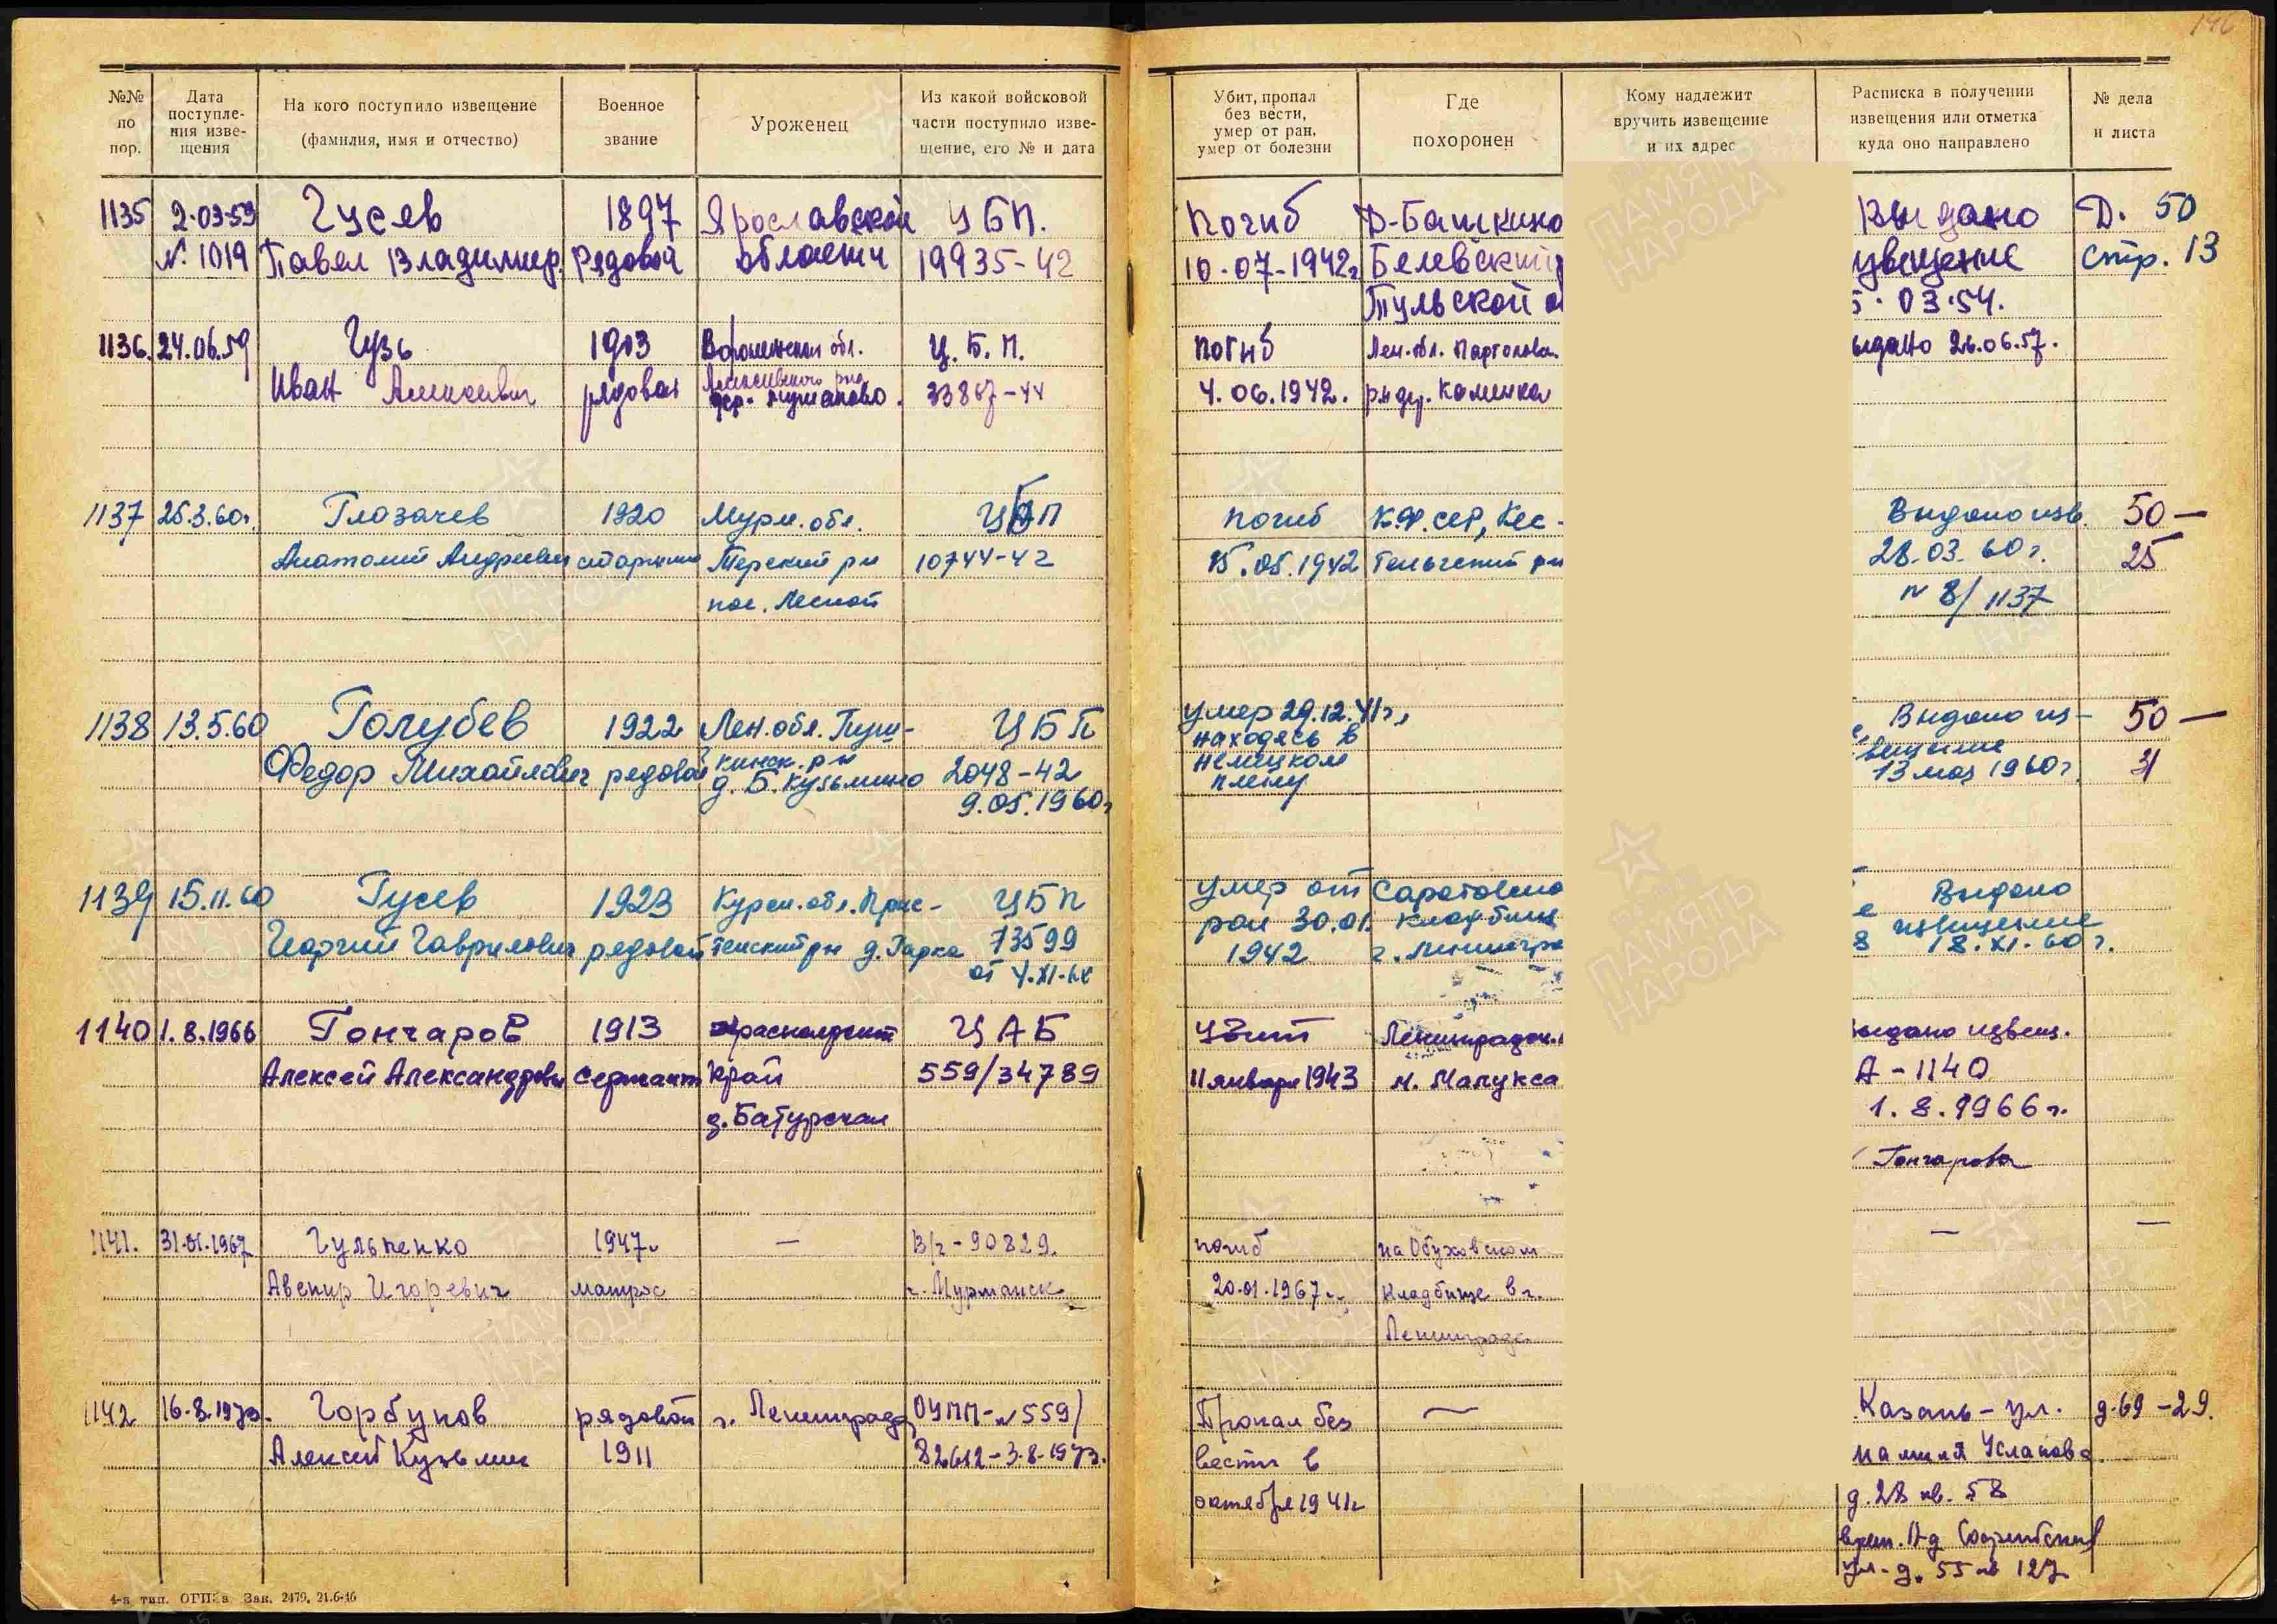 146
№№ по пор.
Дата поступле-ния изве-щения
На кого поступило извещение (фамилия, имя и отчество)
Военное звание
Уроженец
Из какой войсковой части поступило изве-щение, его № и дата
Убит, пропал без вести, умер от ран, умер от болезни
Где похоронен
Кому надлежит вручить извещение и их адрес
Расписка в получении извещения или отметка куда оно направлено
№ дела и листа
1135 2.03.59 Гусев 1897 Ярославской ЦБП. Погиб Д-Башкино Выдано Д. 50
№ 1019 Павел Владимир. Рядовой области 19935-42 10.07-1942г Белевский извещение стр. 13
Тульской 03.54.
1136. 24.06.59 Гузь 1903 Воронежской обл. Ц.Б.П. погиб Лен.обл. 26.06.57.
Иван рядовой 33867-44 4.06.1942. р-н дер. Каменка
1137 25.3.60г. Глазачев 1920 Мурм. обл. ЦБП погиб К.Ф.ССР, Кес- Выдано изв. 50—
Анатолий Андреевич старшина Терский р-н 10744-42 15.05.1942 Теньгский р-н 28.03.60г. 25
пос. Лесной № 8/1137
1138 13.5.60 Голубев 1922 Лен.обл. Пуш- ЦБП умер 29.12.41г, Выдано из- 50—
Федор Михайлович рядовой кинск. р-н 2048-42 находясь в вещение 31
д. Б. Кузьмино 9.05.1960г немецком 13 мая 1960г.
плену
1139 15.11.60 Гусев 1923 Курск. обл. ЦБП умер от Выдано
Георгий Гаврилович рядовой р-н д. Гарка 73599 ран 30.01. кладбище извещение
от 4.XI. 1942 г. Ленингра 18.XI.60г.
1140 1.8.1966 Гончаров 1913 Краснодарский ЦАБ Убит Ленинградск. выдано извещ.
Алексей Александрович сержант край 559/34789 11 января 1943 м. Малукса А-1140
д. Батурская 1.8.1966г.
Гончарова
1141. 31.01.1967 Гульпенко 1947г — В/ч-90829. погиб на Обуховском — —
Авенир Игоревич матрос г. Мурманск 20.01.1967г. кладбище в г.
Ленинграде
1142 16.8.1973. Горбунов рядовой г. Ленинграда ОУПП-№559/ Пропал без — Казань-ул. д.69-29.
Алексей Кузьмич 1911 82612-3.8.1973. вести в
октябре 1941г д. 28 кв. 58
ул. д. 55 кв 127
4-я тип. Зак. 2479, 21.6-46
ПАМЯТЬ НАРОДА